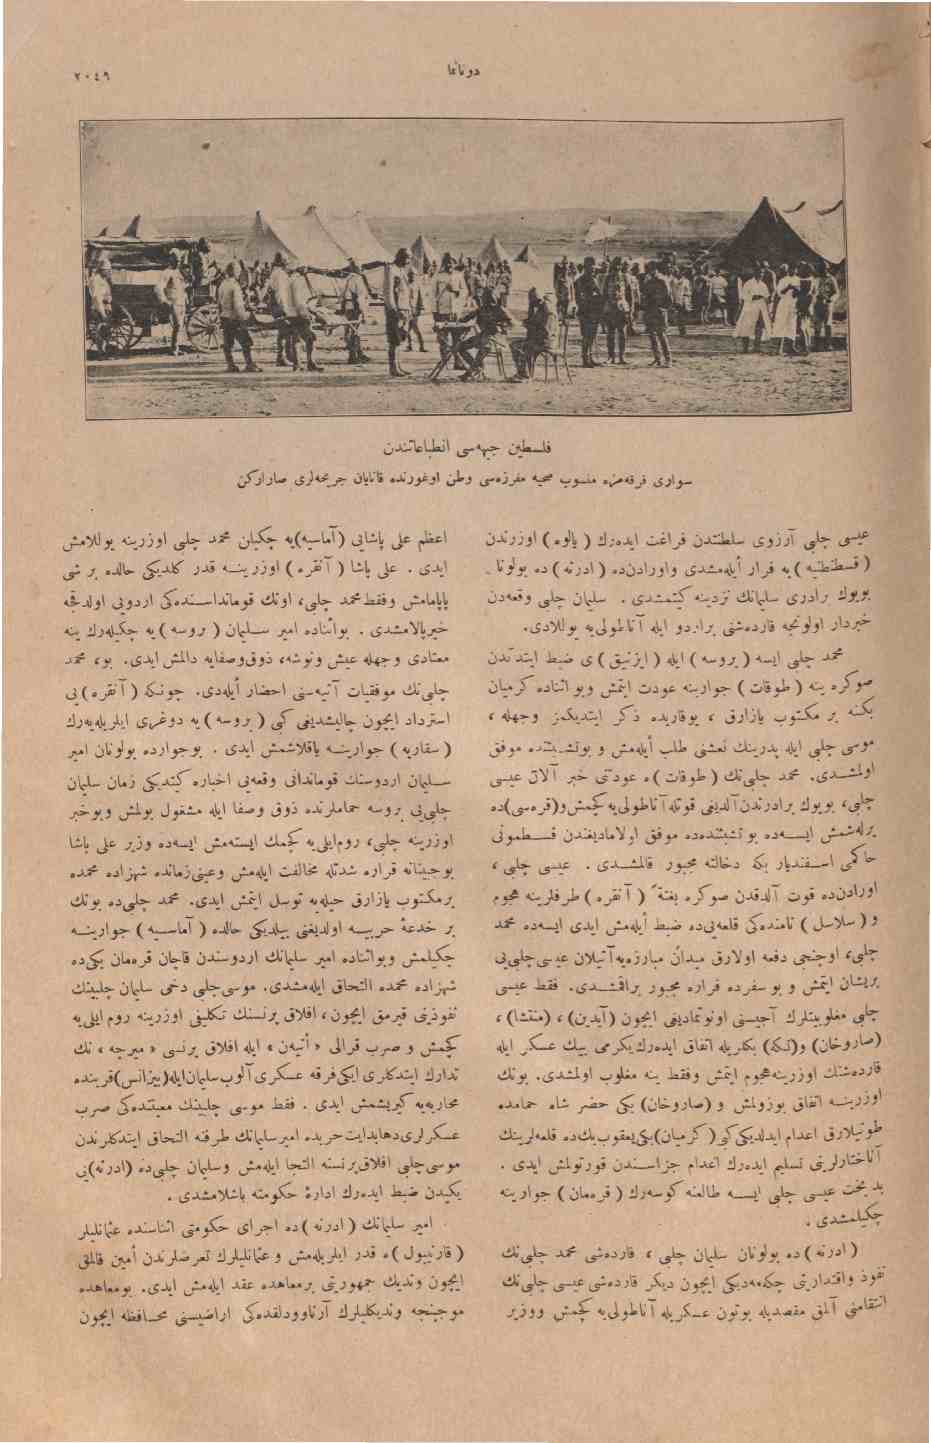 دوناما
٢٠٤٩
فلسطین جبهه‌سی انطباعاتندن
سواری فرقه‌مزه منسوب صحیه مفرزه‌سی وطن اوغورنده قانایان جریحه‌لری صارارکن
عیسی چلبی آرزوی سلطنتدن فراغت ایده‌رك ( یالوه ) اوزرندن
( قسطنطنیه ) یه فرار أیله‌مشدی واورادن‌ده ( ادرنه ) ده بولونا ـ
بویوك برادری سلیمانك نزدینه کیتمشدی . سلیمان چلبی وقعه‌دن
خبردار اولونجه قارده‌شنی براردو ایله آناطولی‌یه یوللادی.
محمد چلبی ایسه ( بروسه ) ایله ( ایزنیق ) ی ضبط ایتدکدن
صوکره ینه ( طوقات ) جوارینه عودت ایتمش وبو اثناده کرمیان
بکنه بر مکتوب یازارق ، یوقاریده ذکر ایتدیکمز وجهله ،
موسی چلبی ایله پدرینك نعشنی طلب أیله‌مش و بوتشبثنده موفق
اولمشدی. محمد چلبی‌نك ( طوقات )ه عودتی خبر آلان عیسی
چلبی، بویوك برادرندن آلدیغی قوتله آناطولی‌یه کچمش و(قره‌سی)ده
یرله‌شمش ایسه‌ده بوتشبثنده‌ده موفق اولامادیغندن قسطمونی
حاکمی اسفندیار بکه دخالته مجبور قالمشدی . عیسی چلبی ،
اورادن‌ده قوت آلدقدن صوکره بغتةً ( آنقره ) طرفلرینه هجوم
و ( سلاسل ) نامنده‌کی قلعه‌یی‌ده ضبط أیله‌مش ایدی ایسه‌ده محمد
چلبی، اوچنجی دفعه اولارق میدان مبارزه‌یه آتیلان عیسی چلبی‌یی
پریشان ایتمش و بو سفرده فراره مجبور براقمشدی. فقط عیسی
چلبی مغلوبیتلرك آجیسنی اونوتمادیغی ایچون (آیدین) ، (منتشا) ،
(صاروخان) و(تکه) بکلریله اتفاق ایده‌رك یکرمی بیك عسکر ایله
قارده‌شنك اوزرینه هجوم ایتمش وفقط ینه مغلوب اولمشدی. بونك
اوزرینه اتفاق بوزولمش و (صاروخان) بکی خضر شاه حمامده
طوتیلارق اعدام ایدلدیکی کبی ( کرمیان)بکی یعقوب بك‌ده قلعه‌لرینك
آناختارلرینی تسلیم ایده‌رك اعدام جزاسندن قورتولمش ایدی .
بدبخت عیسی چلبی ایسه طالعنه کوسه‌رك ( قره‌مان ) جوارینه
چکیلمشدی .
( ادرنه ) ده بولونان سلیمان چلبی ، قارده‌شی محمد چلبی‌نك
نفوذ واقتدارینی چکه‌مه‌دیکی ایچون دیکر قارده‌شی عیسی چلبی‌نك
انتقامنی آلمق مقصدیله بوتون عسکریله آناطولی‌یه کچمش ووزیر
اعظم علی پاشایی (آماسیه)یه چکیلن محمد چلبی اوزرینه یوللامش
ایدی . علی پاشا ( آنقره ) اوزرینه قدر کلدیکی حالده بر شی
یاپامامش وفقط محمد چلبی، اونك قومانداسنده‌کی اردویی اولدقجه
خیرپالامشدی . بواثناده امیر سلیمان ( بروسه ) یه چکیله‌رك ینه
معتادی وجهله عیش ونوشه، ذوق‌وصفایه دالمش ایدی. بو، محمد
چلبی‌نك موفقیات آتیه‌سنی احضار أیله‌دی. چونکه ( آنقره )یی
استرداد ایچون چالیشدیغی کبی ( بروسه ) یه دوغری ایلریله‌یه‌رك
( سقاریه ) جوارینه یاقلاشمش ایدی . بوجوارده بولونان امیر
سلیمان اردوسنك قوماندانی وقعه‌یی اخباره کیتدیکی زمان سلیمان
چلبی‌یی بروسه حماملرنده ذوق وصفا ایله مشغول بولمش وبوخبر
اوزرینه چلبی، روم‌ایلی‌یه کچمك ایسته‌مش ایسه‌ده وزیر علی پاشا
بوجبینانه قراره شدتله مخالفت ایله‌مش وعینی‌زمانده شهزاده محمده
برمکتوب یازارق حیله‌یه توسل ایتمش ایدی. محمد چلبی‌ده بونك
بر خدعهٔ حربیه اولدیغنی بیلدیکی حالده ( آماسیه ) جوارینه
چکیلمش وبواثناده امیر سلیمانك اردوسندن قاچان قره‌مان بکی‌ده
شهزاده محمده التحاق ایله‌مشدی. موسی‌چلبی دخی سلیمان چلبینك
نفوذینی قیرمق ایچون ، افلاق پرنسنك تکلیفی اوزرینه روم‌ایلی‌یه
کچمش و صرب قرالی « أتیه‌ن » ایله افلاق پرنسی « میرجه » نك
تدارك ایتدکلری ایکی فرقه عسکری آلوب سلیمان‌ایله(بیزانس)قربنده
محاربه‌یه کیریشمش ایدی . فقط موسی چلبینك معیتنده‌کی صرب
عسکرلری‌دهابدایت حربده امیرسلیمانك طرفنه التحاق ایتدکلرندن
موسی‌چلبی افلاق‌پرنسنه التجا ایله‌مش وسلیمان چلبی‌ده (ادرنه)یی
یکیدن ضبط ایده‌رك ادارهٔ حکومته باشلامشدی .
امیر سلیمانك ( ادرنه ) ده اجرای حکومتی اثناسنده عثمانلیلر
( قارنیبول )ه قدر ایلریله‌مش و عثمانلیلرك تعرضلرندن أمین قالمق
ایچون وندیك جمهوریتی برمعاهده عقد ایله‌مش ایدی. بومعاهده
موجبنجه وندیکلیلرك آرناوودلقده‌کی اراضیسنی محافظه ایچون